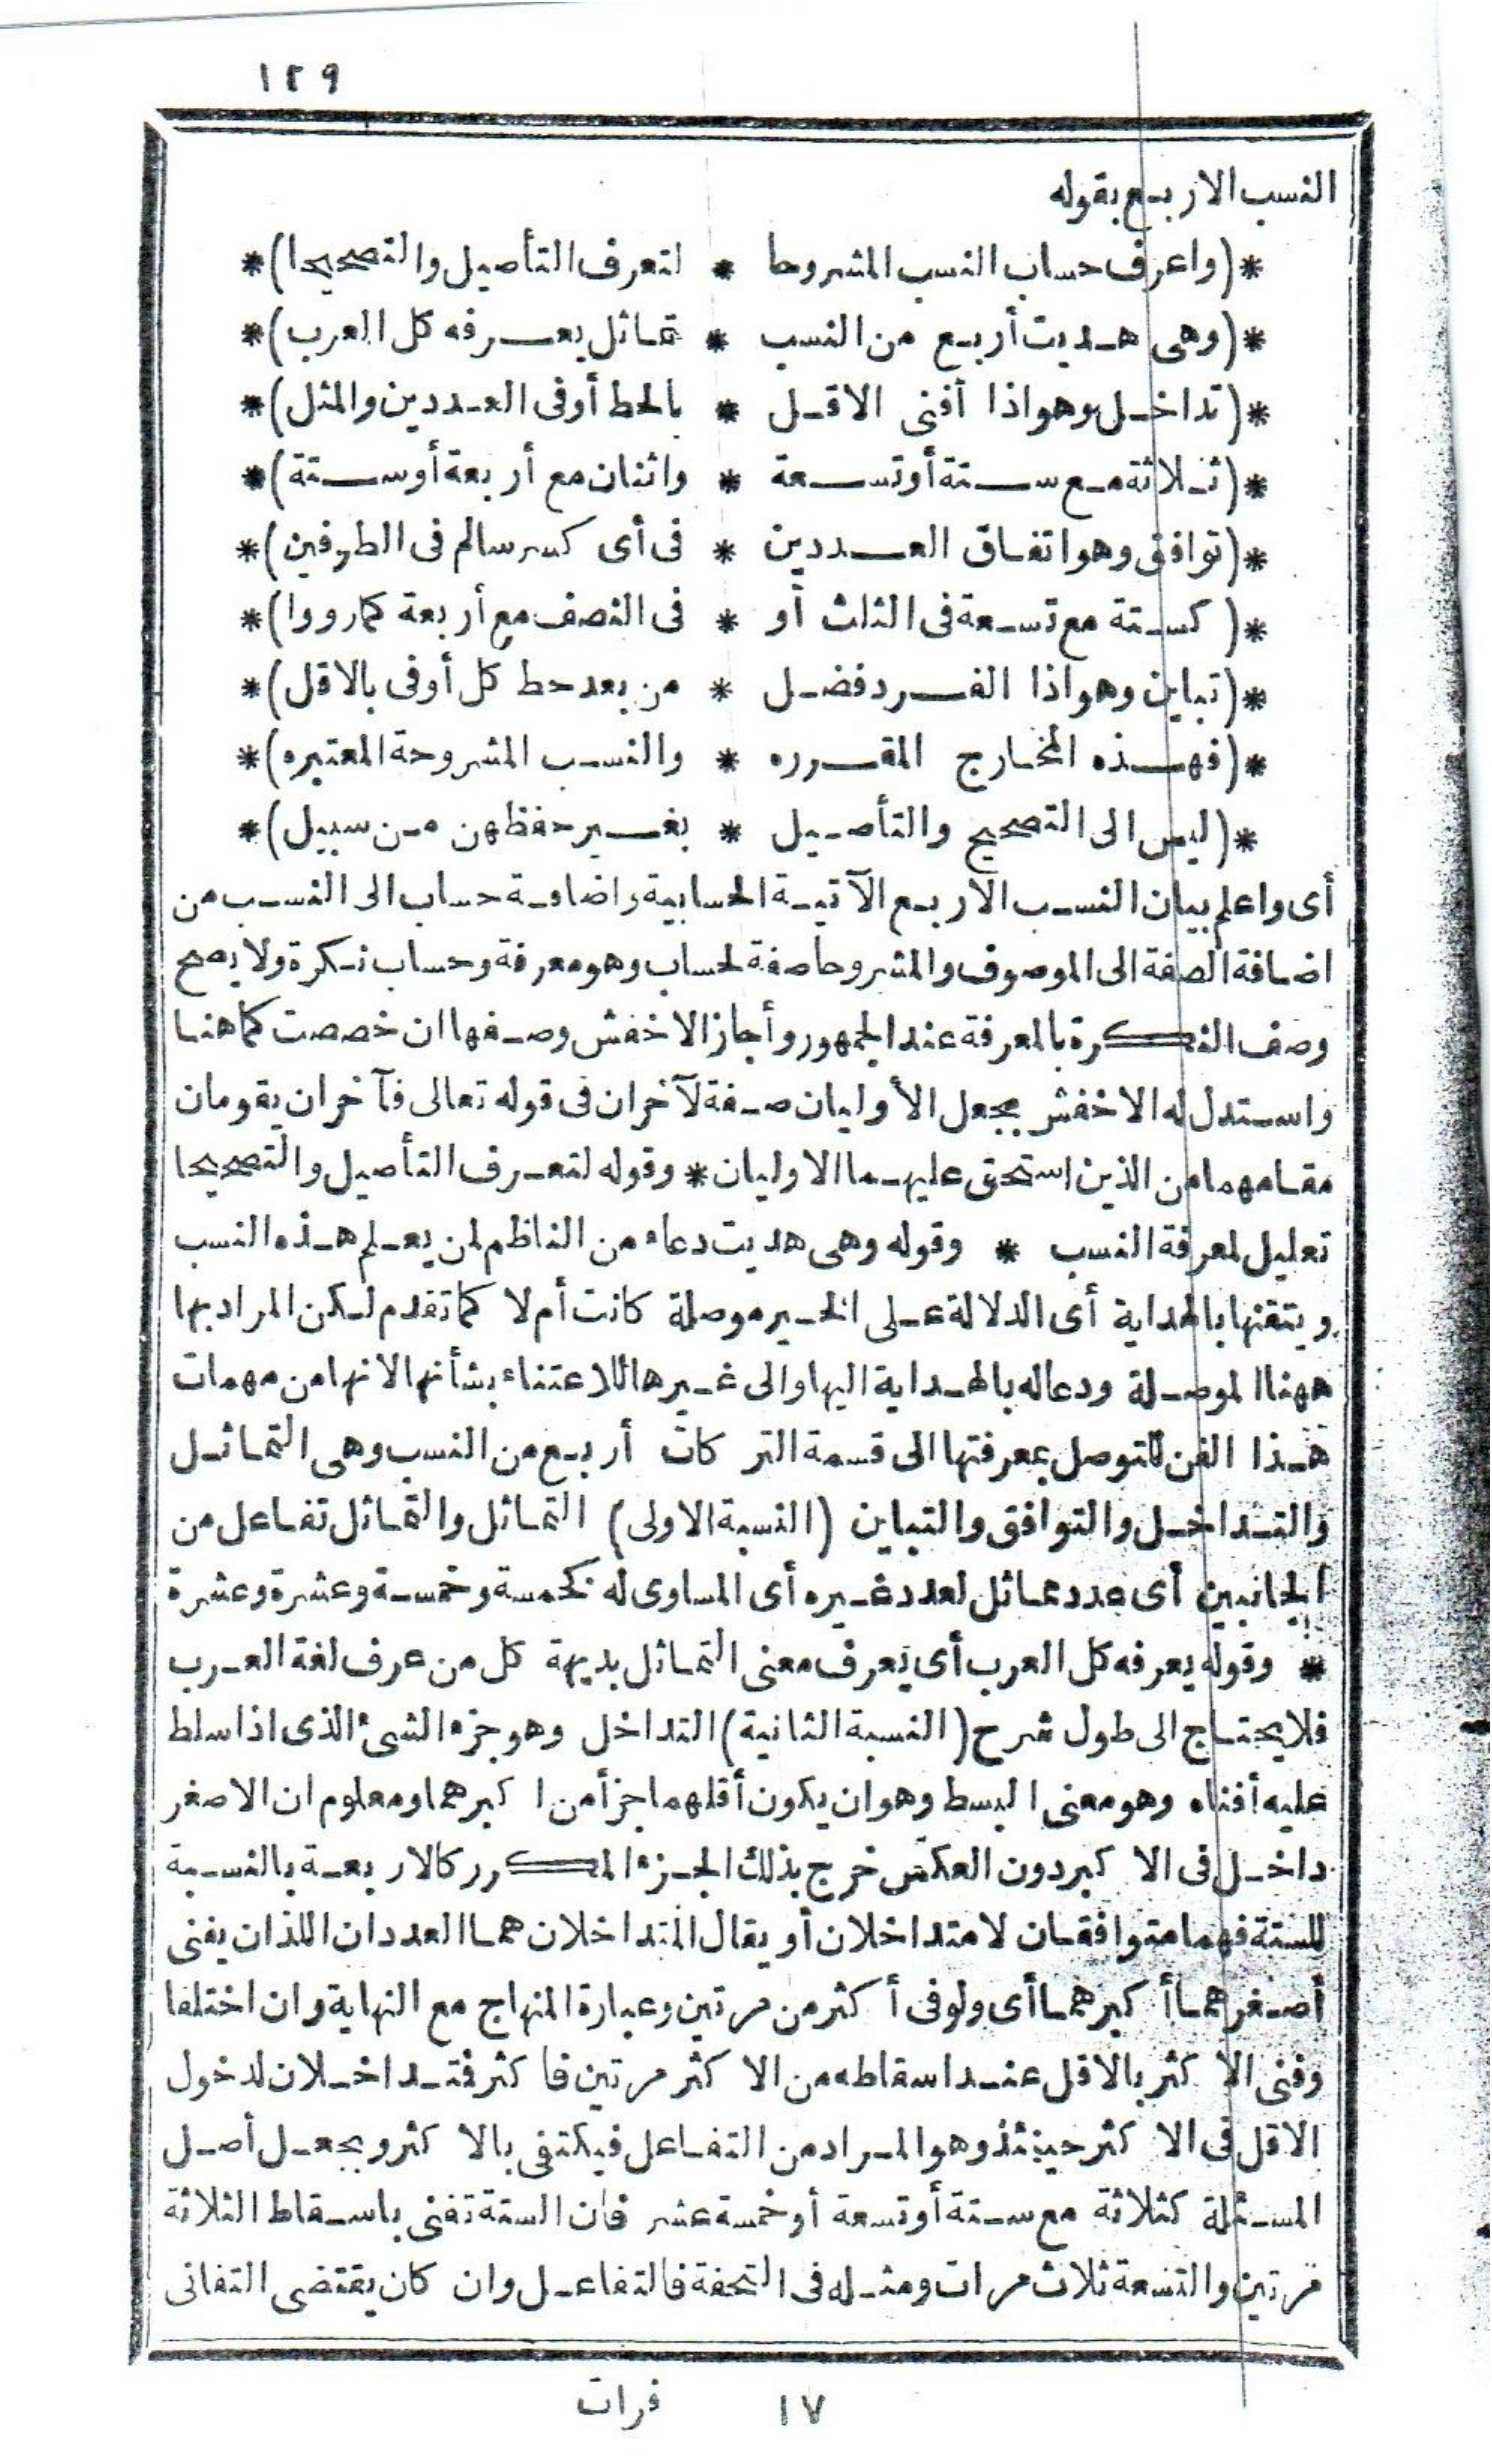 ١٢٩
النسب الاربع بقوله
*(واعرف حساب النسب المشروحا * لتعرف التأصيل والتصحيحا)*
*(وهى هديت أربع من النسب * تماثل يعرفه كل العرب)*
*(تداخل وهو اذا أفنى الاقل * بالحط أوفى العددين والمثل)*
*(ثلاثة مع ستة أو تسعة * واثنان مع أربعة أو ستة)*
*(توافق وهو اتفاق العددين * فى أى كسر سالم فى الطرفين)*
*(كستة مع تسعة فى الثلث أو * فى النصف مع أربعة كما رووا)*
*(تباين وهو اذا الفرد فضل * من بعد حط كل أوفى بالاقل)*
*(فهذه المخارج المقرره * والنسب المشروحة المعتبره)*
*(ليس الى التصحيح والتأصيل * بغير حفظهن من سبيل)*
أى واعلم بيان النسب الاربع الآتية الحسابية واضافة حساب الى النسب من
اضافة الصفة الى الموصوف والمشروحا صفة لحساب وهو معرفة وحساب نكرة ولا يصح
وصف النكرة بالمعرفة عند الجمهور وأجاز الاخفش وصفها ان خصصت كما هنا
واستدل له الاخفش بجعل الأوليان صفة لآخران فى قوله تعالى فآخران يقومان
مقامهما من الذين استحق عليهما الاوليان * وقوله لتعرف التأصيل والتصحيحا
تعليل لمعرفة النسب * وقوله وهى هديت دعاء من الناظم لمن يعلم هذه النسب
ويتقنها بالهداية أى الدلالة على الخير موصلة كانت أم لا كما تقدم لكن المراد بها
ههنا الموصلة ودعاله بالهداية اليها والى غيرها للاعتناء بشأنها لانها من مهمات
هذا الفن للتوصل بمعرفتها الى قسمة التركات أربع من النسب وهى التماثل
والتداخل والتوافق والتباين (النسبة الاولى) التماثل والتماثل تفاعل من
الجانبين أى عدد مماثل لعدد غيره أى المساوى له كخمسة وخمسة وعشرة وعشرة
* وقوله يعرفه كل العرب أى يعرف معنى التماثل بديهة كل من عرف لغة العرب
فلا يحتاج الى طول شرح (النسبة الثانية) التداخل وهو جزء الشئ الذى اذا سلط
عليه أفناه وهو معنى البسط وهو ان يكون أقلهما جزأ من اكبرهما ومعلوم ان الاصغر
داخل فى الاكبر دون العكس خرج بذلك الجزء المكرر كالاربعة بالنسبة
للستة فهما متوافقان لا متداخلان أو يقال المتداخلان هما العددان اللذان يفنى
أصغرهما أكبرهما أى ولو فى أكثر من مرتين وعبارة المنهاج مع النهاية وان اختلفا
وفنى الاكثر بالاقل عند اسقاطه من الاكثر مرتين فاكثر فتداخلان لدخول
الاقل فى الاكثر حينئذ وهو المراد من التفاعل فيكتفى بالاكثر ويجعل أصل
المسئلة كثلاثة مع ستة أو تسعة أو خمسة عشر فان الستة تفنى باسقاط الثلاثة
مرتين والتسعة ثلاث مرات ومثله فى التحفة فالتفاعل وان كان يقتضى التفانى
١٧ فرات